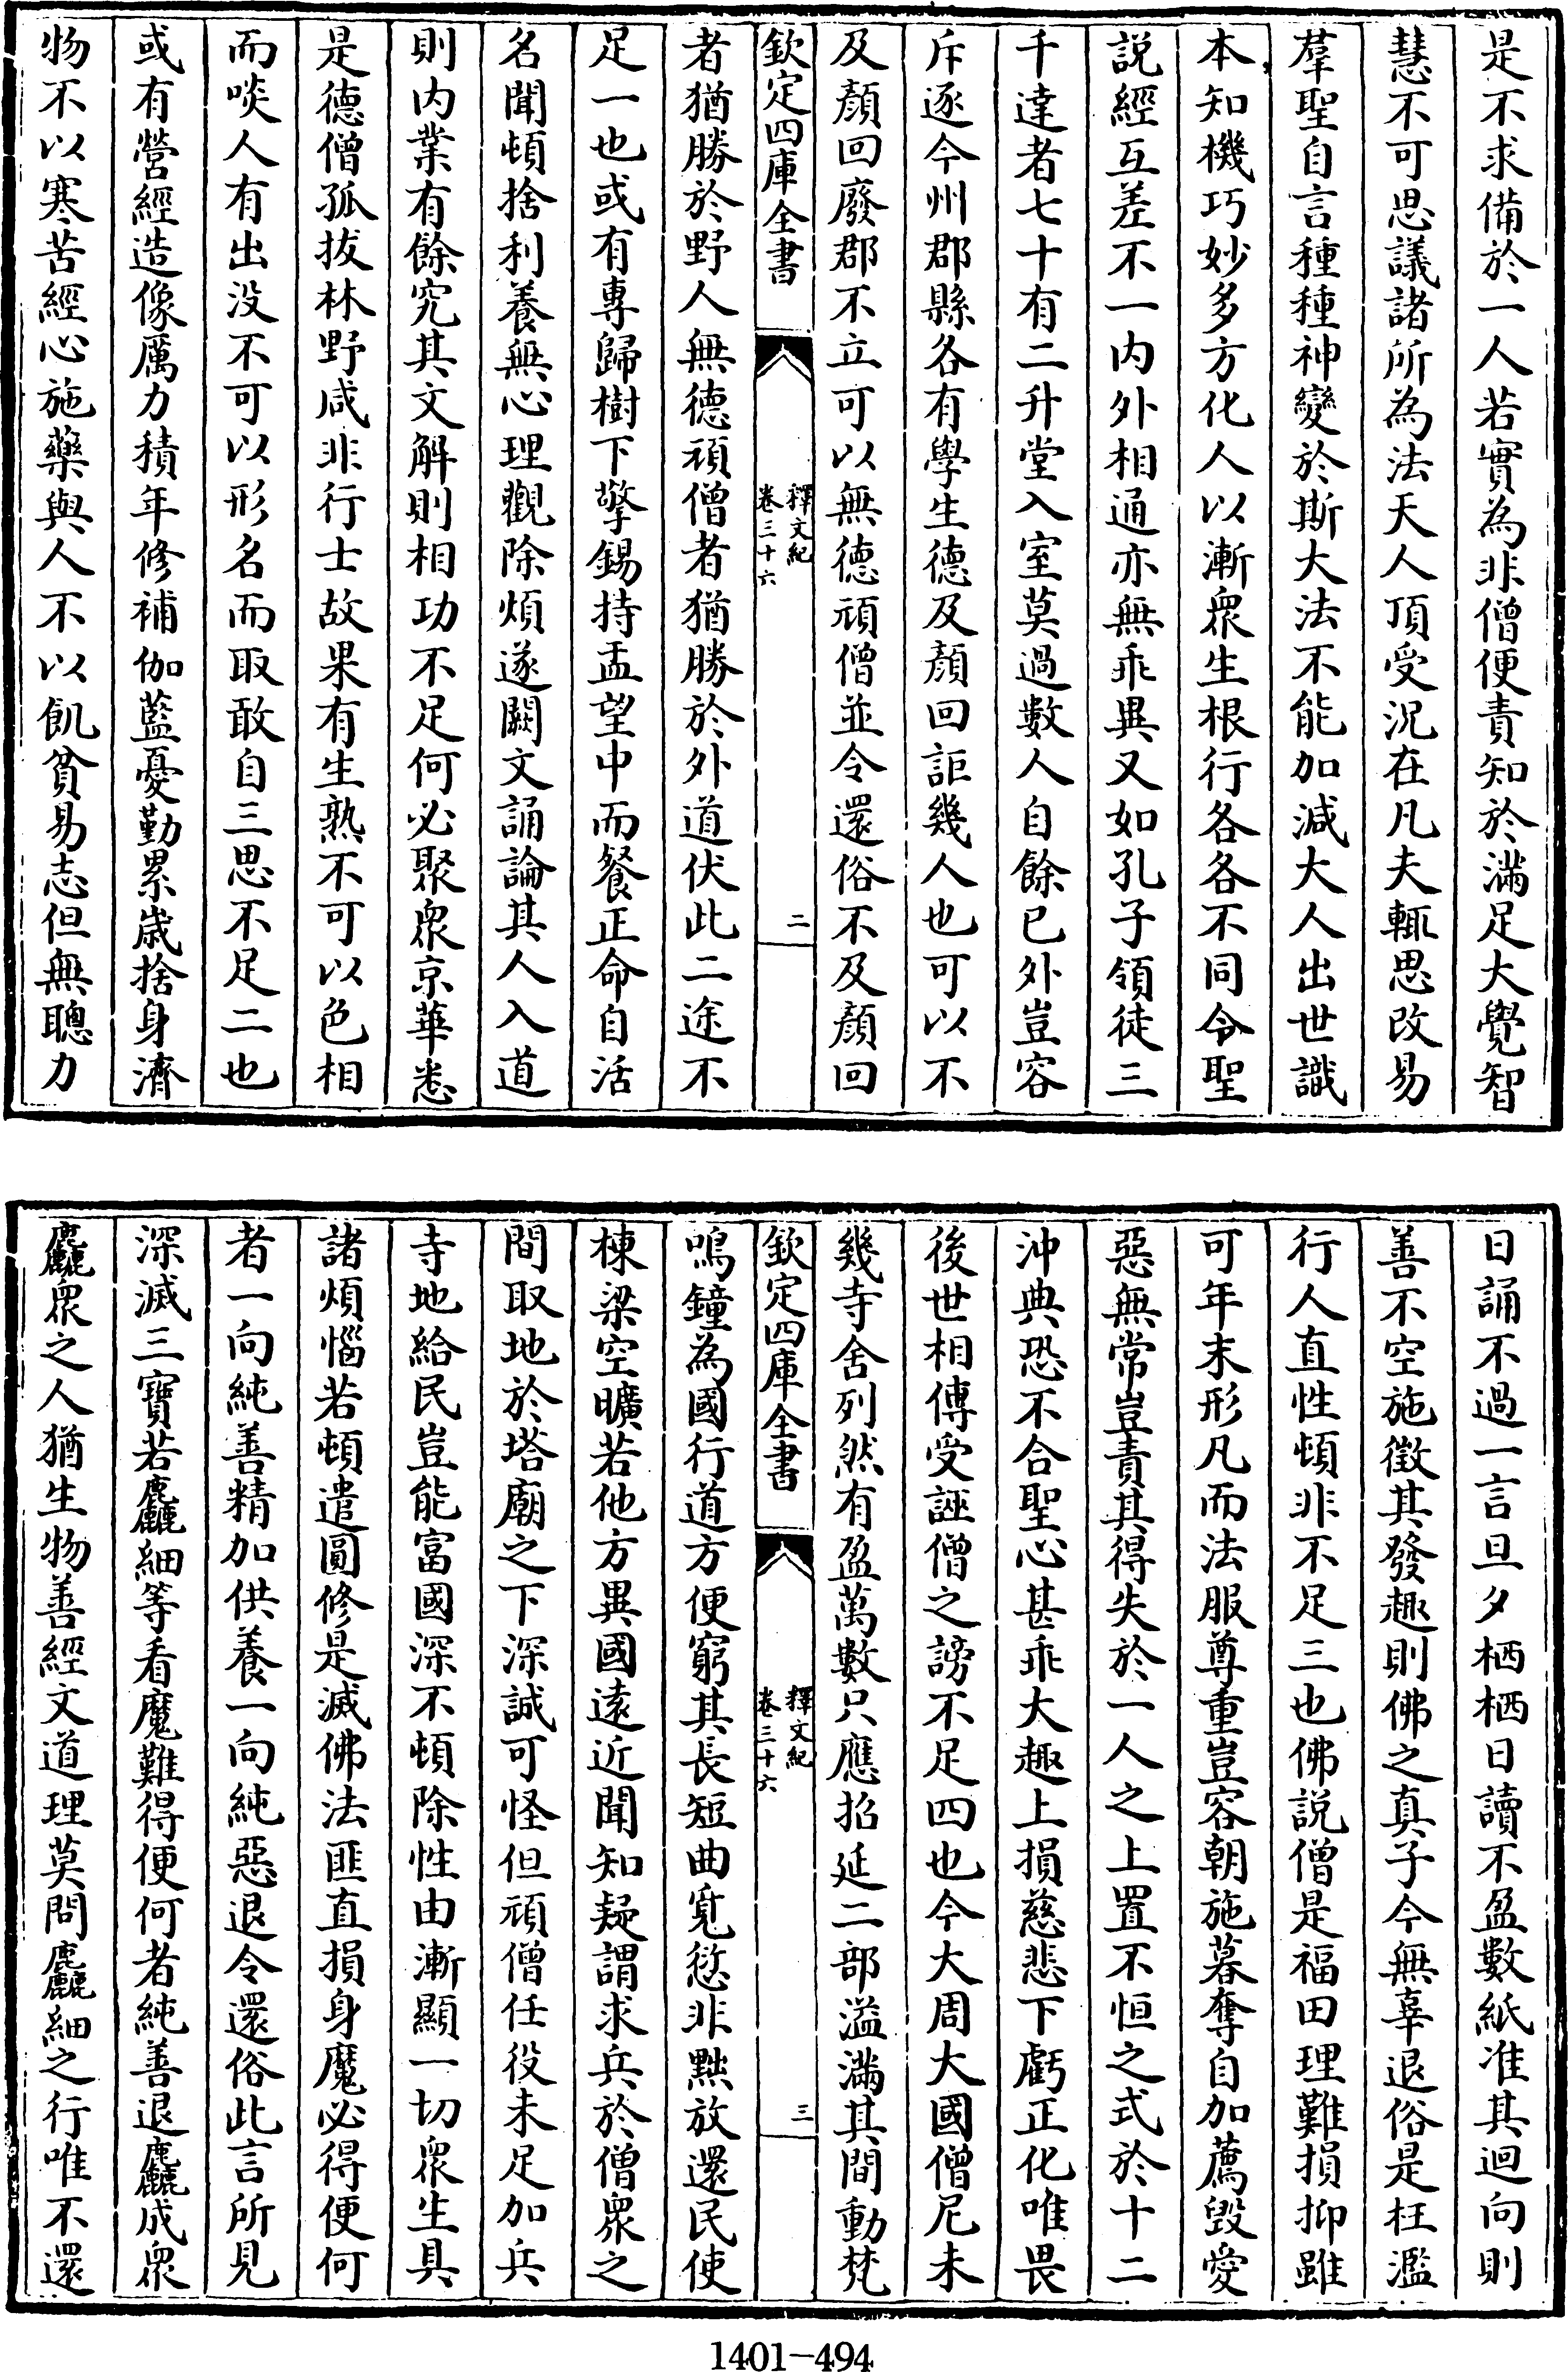 是不求備於一人若實為非僧便責知於滿足大覺智
慧不可思議諸所為法天人頂受況在凡夫輒思改易
羣聖自言種種神變於斯大法不能加減大人出世識
本知機巧妙多方化人以漸衆生根行各各不同令聖
説經互差不一内外相通亦無乖異又如孔子領徒三
千達者七十有二升堂入室莫過數人自餘已外豈容
斥逐今州郡縣各有學生德及顔回詎幾人也可以不
及顔回廢郡不立可以無德頑僧並令還俗不及顔回
欽定四庫全書
釋文紀
卷三十六
二
者猶勝於野人無德頑僧者猶勝於外道伏此二途不
足一也或有專歸樹下擎錫持盂望中而餐正命自活
名聞頓捨利養無心理觀除煩遂闕文誦論其人入道
則内業有餘究其文解則相功不足何必聚衆京華悉
是德僧孤拔林野咸非行士故果有生熟不可以色相
而啖人有出没不可以形名而取敢自三思不足二也
或有營經造像厲力積年修補伽藍憂勤累歳捨身濟
物不以寒苦經心施藥與人不以飢貧易志但無聰力
日誦不過一言旦夕栖栖日讀不盈數紙准其迴向則
善不空施徵其發趣則佛之真子今無辜退俗是枉濫
行人直性頓非不足三也佛説僧是福田理難損抑雖
可年末形凡而法服尊重豈容朝施暮奪自加薦毁愛
惡無常豈責其得失於一人之上置不恒之式於十二
沖典恐不合聖心甚乖大趣上損慈悲下虧正化唯畏
後世相傳受誣僧之謗不足四也今大周大國僧尼未
幾寺舍列然有盈萬數只應招延二部溢滿其間動梵
欽定四庫全書
釋文紀
卷三十六
三
鳴鐘為國行道方便窮其長短曲覓愆非黜放還民使
棟梁空曠若他方異國遠近聞知疑謂求兵於僧衆之
間取地於塔廟之下深誠可怪但頑僧任役未足加兵
寺地給民豈能富國深不頓除性由漸顯一切衆生具
諸煩惱若頓遣圓修是滅佛法匪直損身魔必得便何
者一向純善精加供養一向純惡退令還俗此言所見
深滅三寶若麤細等看魔難得便何者純善退麤成衆
麤衆之人猶生物善經文道理莫問麤細之行唯不還
1401-494